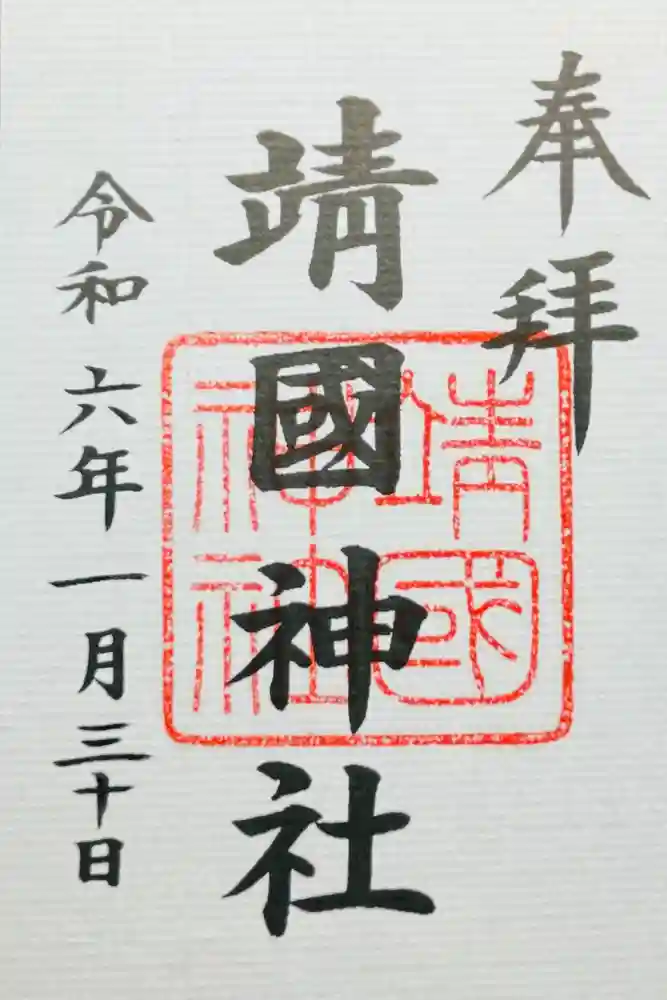 奉拝
靖國神社
靖國神社
令和六年一月三十日